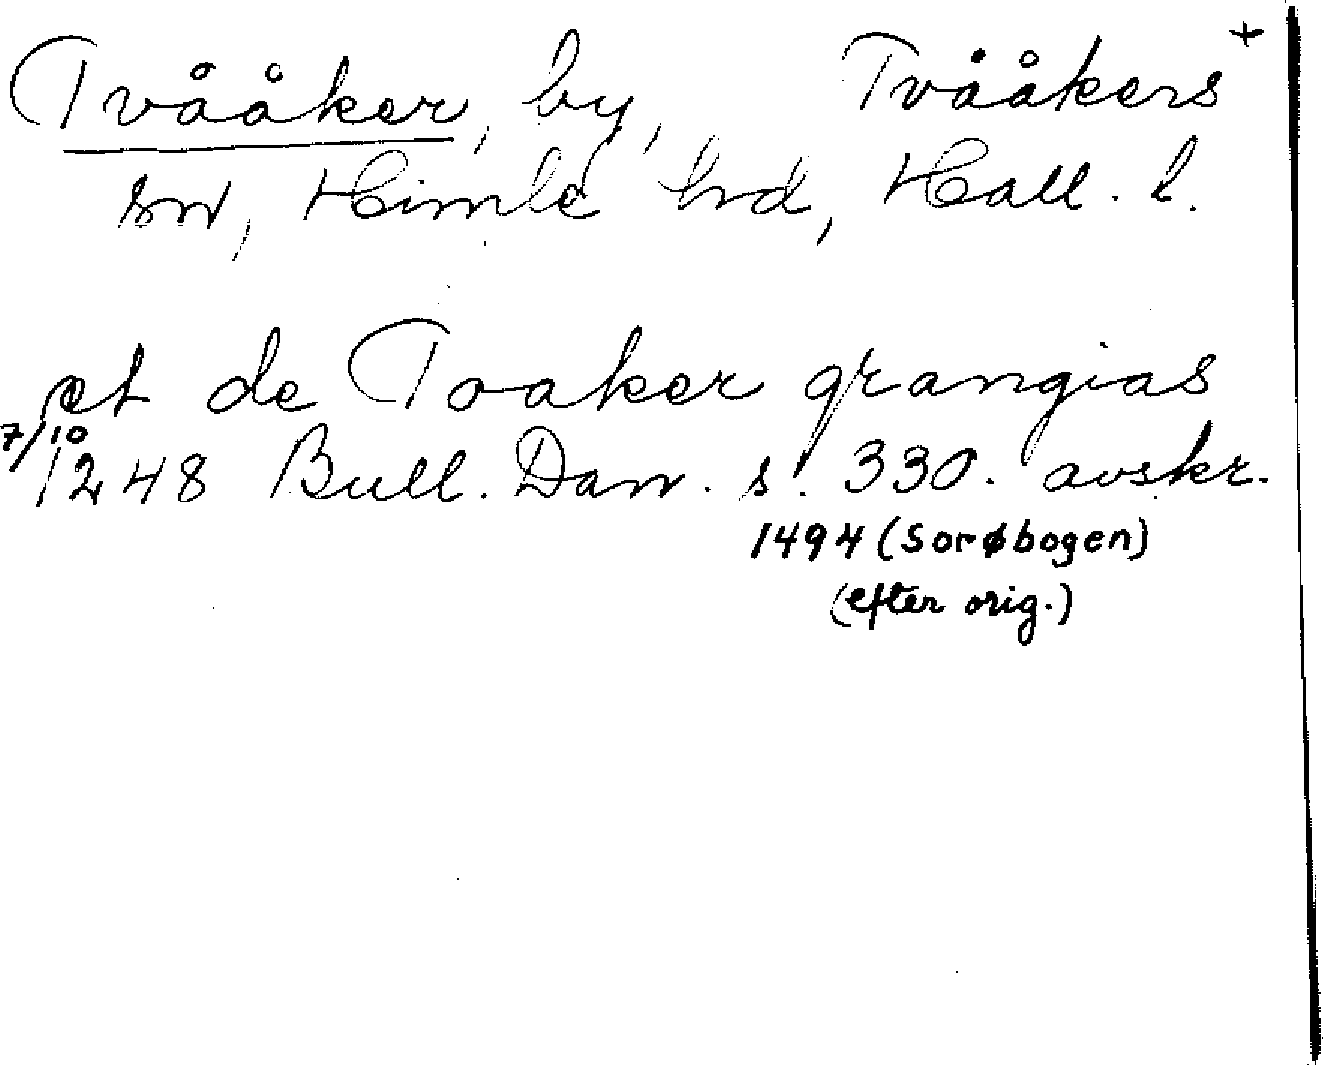 Tvååker, by, Tvååkers +
sn, Himle hd, Hall. l.
et de Toaker grangias
7/10 1248 Bull. Dan. s. 330. avskr.
1494 (Sorøbogen)
(efter orig.)